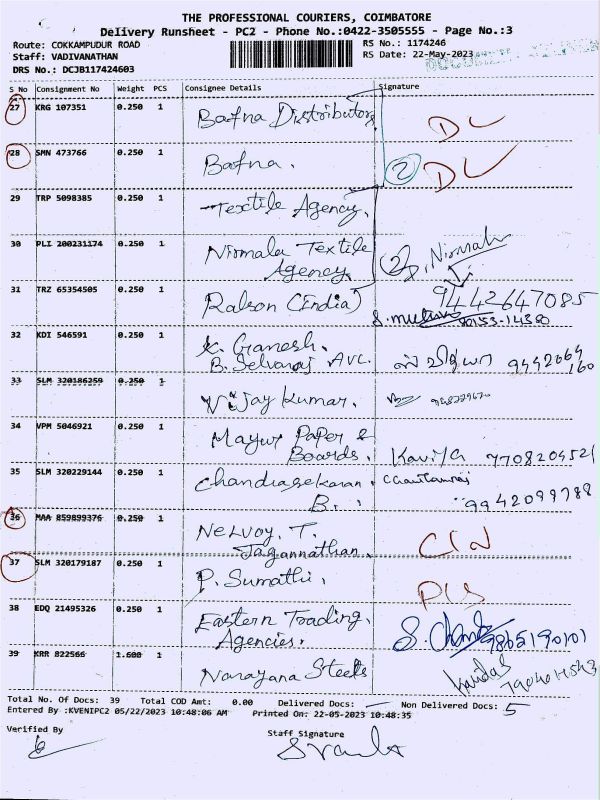 THE PROFESSIONAL COURIERS, COIMBATORE
Delivery Runsheet - PC2 - Phone No.:0422-3505555 - Page No.:3
Route: COKKAMPUDUR ROAD RS No.: 1174246
Staff: VADIVANATHAN RS Date: 22-May-2023
DRS No.: DCJB117424603
S No Consignment No Weight PCS Consignee Details Signature
27 KRG 107351 0.250 1 Bafna Distributors DL
28 SMN 473766 0.250 1 Bafna. 2 DL
29 TRP 5098385 0.250 1 Textile Agency.
30 PLI 200231174 0.250 1 Nirmala Textile
Agency. 2 P. Nirmala
31 TRZ 65354505 0.250 1 Ralson (India) 9442647085
32 KDI 546591 0.250 1 K. Ganesh.
B. Selvaraj AVC. 9442064
160
33 SLM 320186259 0.250 1 Vijay Kumar.
34 VPM 5046921 0.250 1 Mayur Paper &
Boards. Kavitha 7708204521
35 SLM 320229144 0.250 1 Chandrasekaran
B. 9942099788
36 MAA 859899376 0.250 1 Nelvoy. T.
Jagannathan.
37 SLM 320179187 0.250 1 P. Sumathi.
38 EDQ 21495326 0.250 1 Eastern Trading
Agencies. 9865190101
39 KRR 822566 1.600 1 Narayana Steels
Total No. Of Docs: 39 Total COD Amt: 0.00 Delivered Docs: Non Delivered Docs: 5
Entered By :KVENIPC2 05/22/2023 10:48:06 AM Printed On: 22-05-2023 10:48:35
Verified By Staff Signature